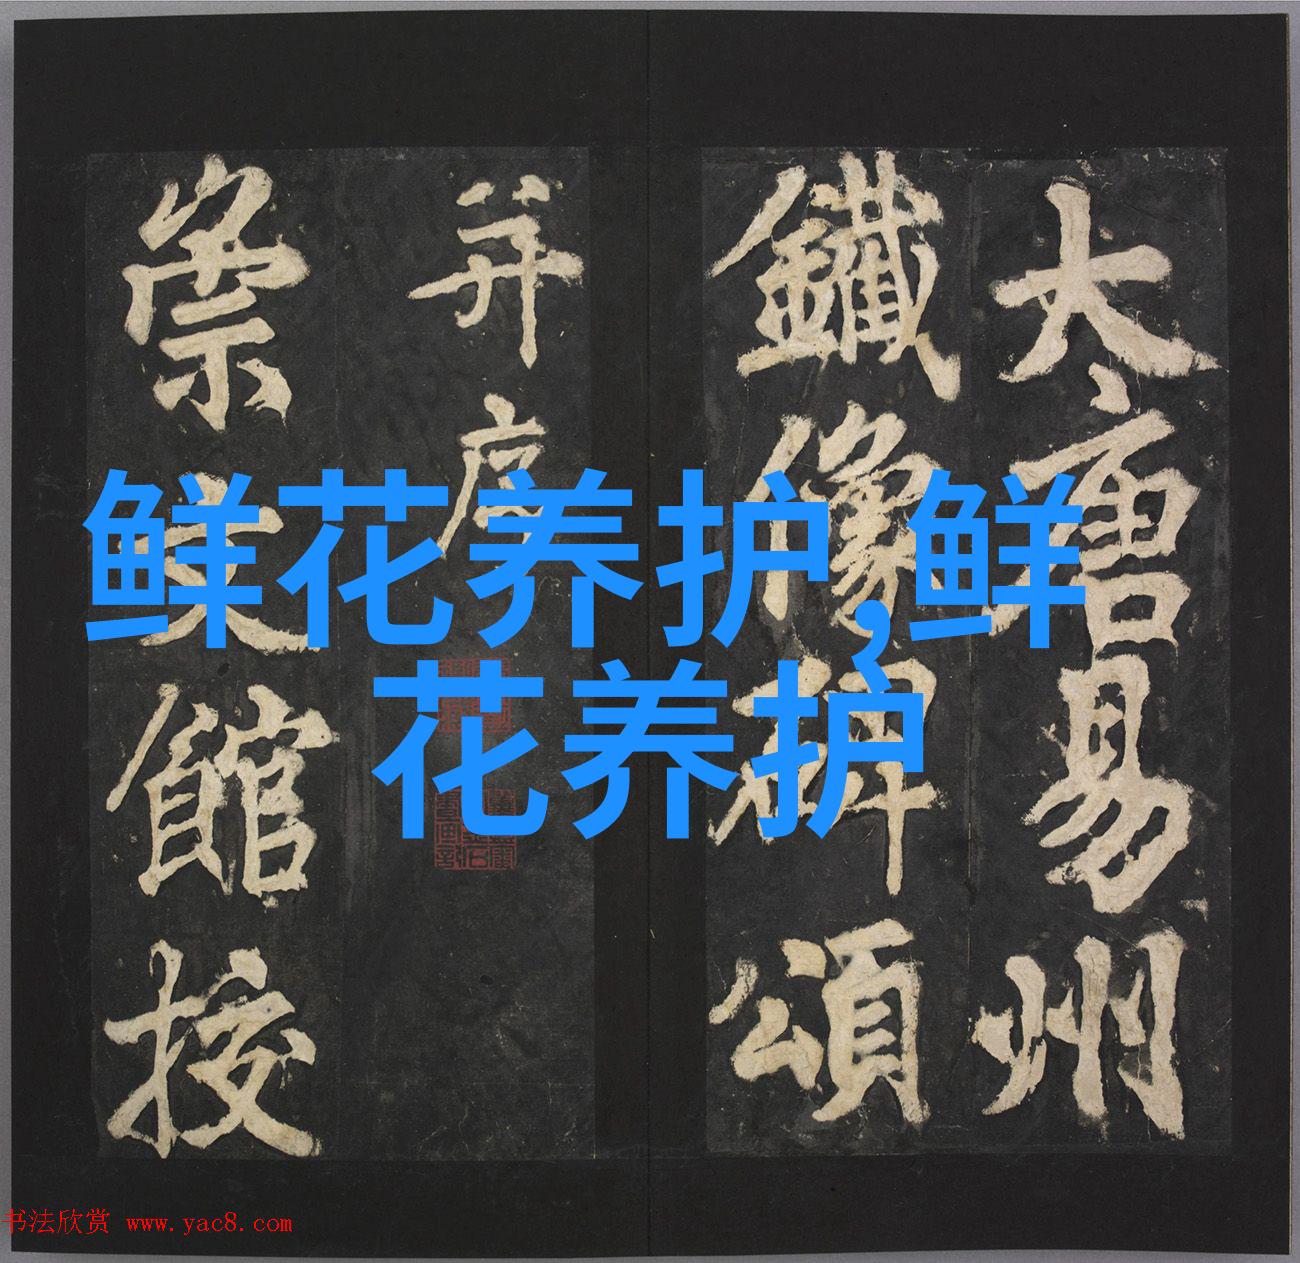 大唐易州
鐵像碑頌
并序
崇文館挍
鲜花养护,鲜
花养护
书法欣赏 www.yac8.com